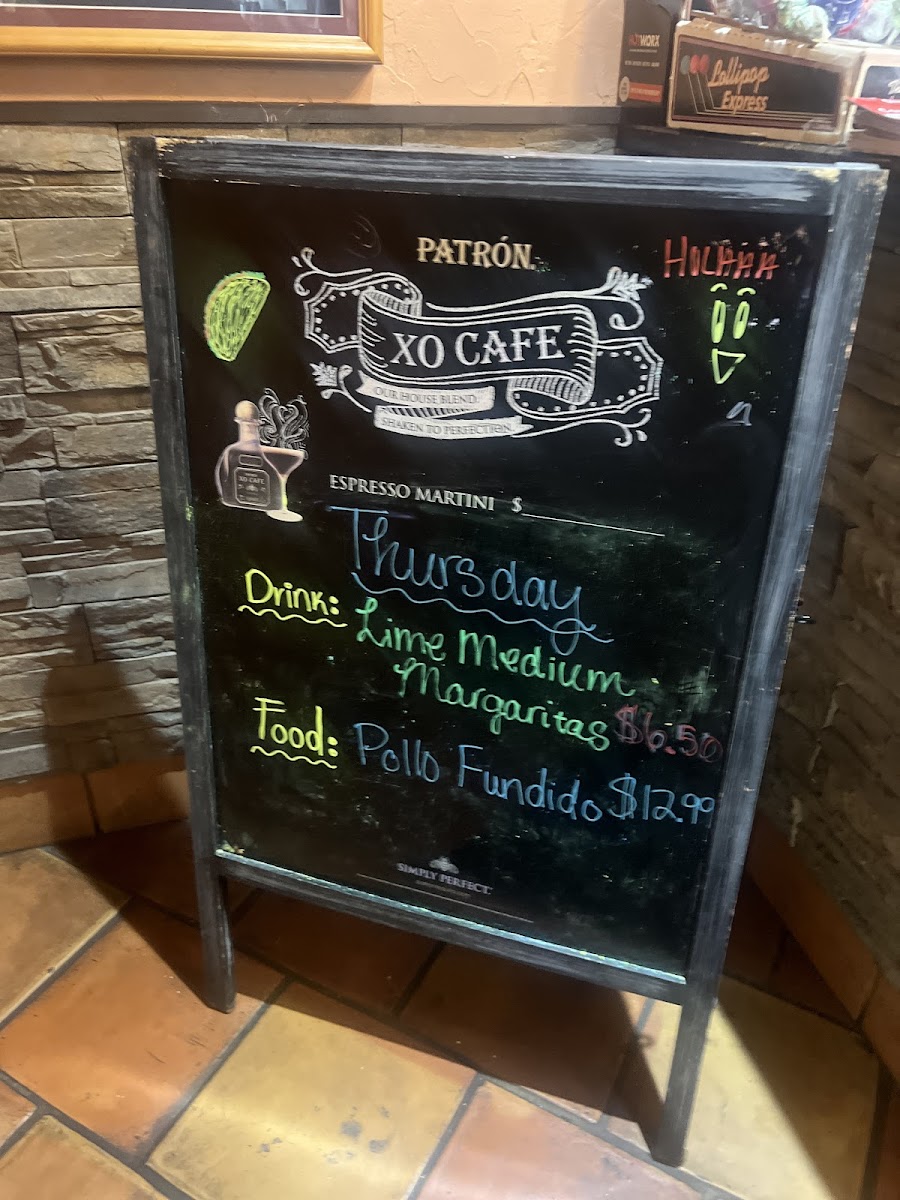 HOTWORX
Lollipop
Express
PATRÓN
HOLAAA
XO CAFE
OUR HOUSE BLEND.
SHAKEN TO PERFECTION.
XO CAFE
ESPRESSO MARTINI $
Thursday
Drink: Lime Medium
Margaritas $6.50
Food: Pollo Fundido $12.99
SIMPLY PERFECT.